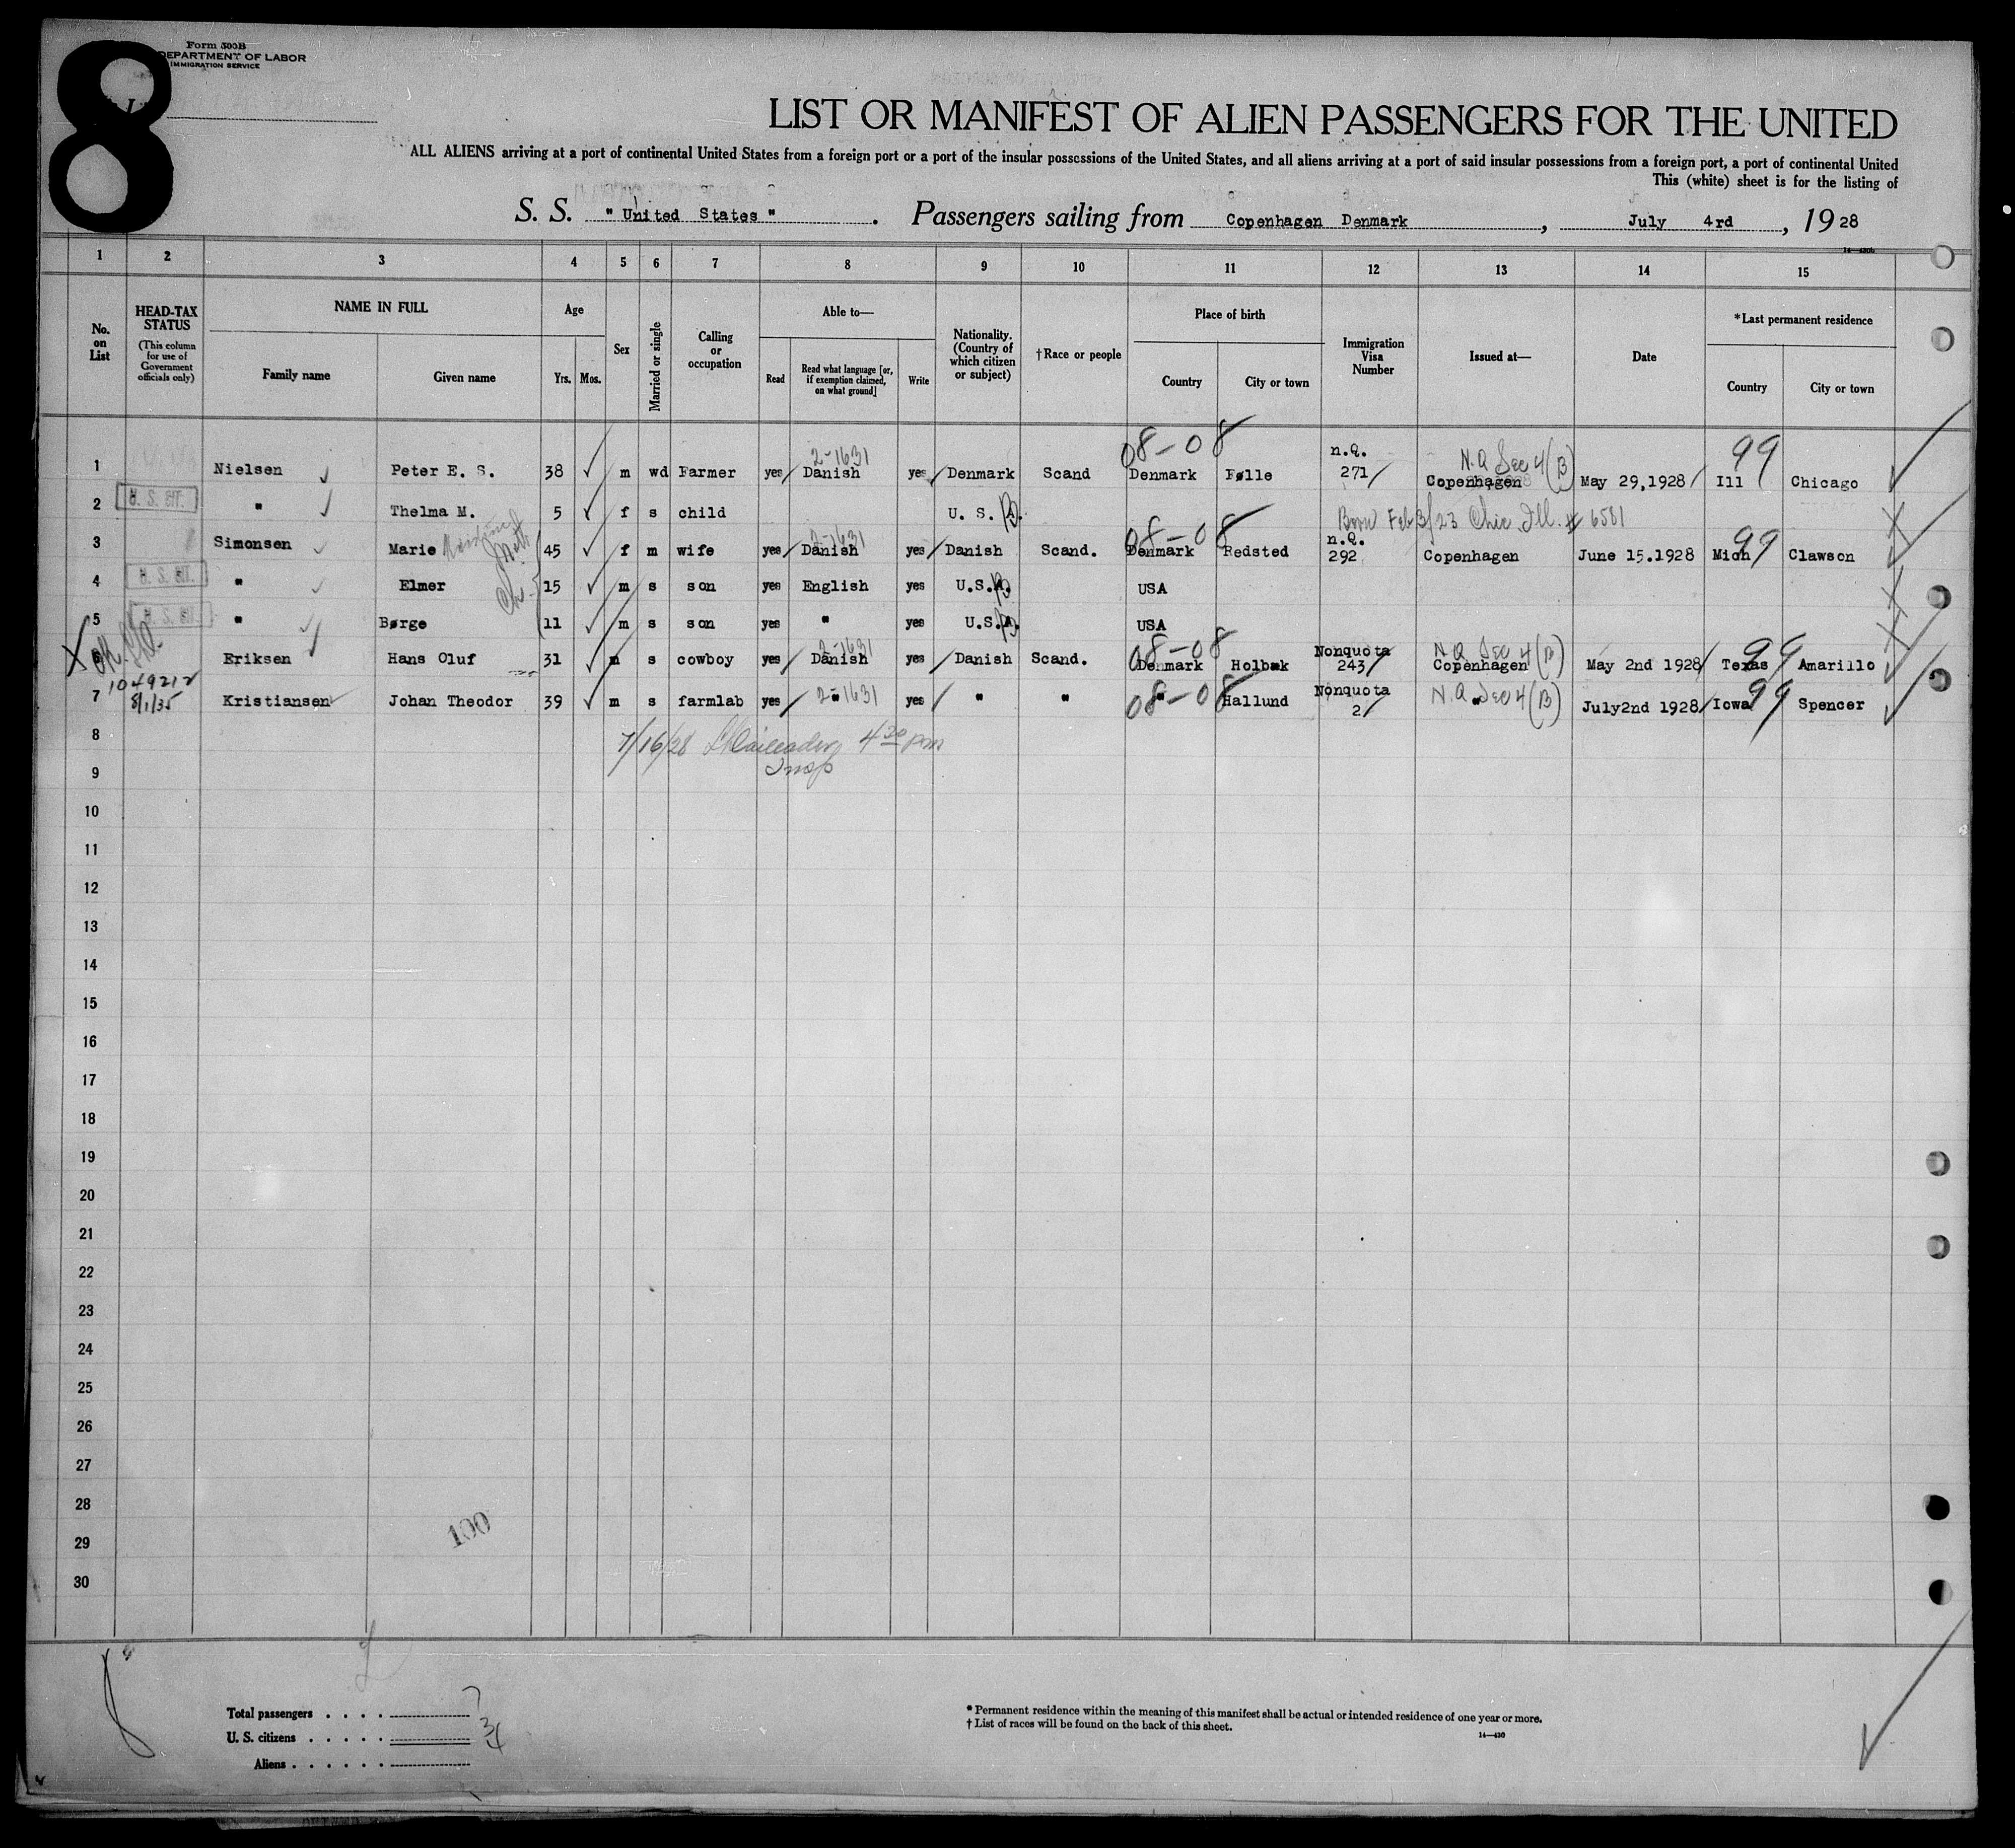 8
Form 500B
DEPARTMENT OF LABOR
IMMIGRATION SERVICE
LIST OR MANIFEST OF ALIEN PASSENGERS FOR THE UNITED
ALL ALIENS arriving at a port of continental United States from a foreign port or a port of the insular possessions of the United States, and all aliens arriving at a port of said insular possessions from a foreign port, a port of continental United
This (white) sheet is for the listing of
S. S. "United States". Passengers sailing from Copenhagen Denmark, July 4rd, 1928
1 2 3 4 5 6 7 8 9 10 11 12 13 14 15
No. on List
HEAD-TAX STATUS
(This column for use of Government officials only)
NAME IN FULL
Family name
Given name
Age
Yrs. Mos.
Sex
Married or single
Calling or occupation
Able to—
Read
Read what language [or, if exemption claimed, on what ground]
Write
Nationality. (Country of which citizen or subject)
†Race or people
Place of birth
Country
City or town
Immigration Visa Number
Issued at—
Date
*Last permanent residence
Country
City or town
08-08 n.Q. N.Q Sec 4(B) 99
2-1631
1 Nielsen Peter E. S. 38 m wd Farmer yes Danish yes Denmark Scand Denmark Følle 271 Copenhagen May 29,1928 Ill Chicago
2 " Thelma M. 5 f s child U. S. A. Born Feb 3/23 Chic Ill. # 6581
2-1631 08-08 n.Q. 99
3 Simonsen Marie 45 f m wife yes Danish yes Danish Scand. Denmark Redsted 292 Copenhagen June 15.1928 Mich Clawson
4 " Elmer 15 m s son yes English yes U.S.A. USA
5 " Børge 11 m s son yes " yes U.S.A. USA
2-1631 08-08 Nonquota N.Q Sec 4(B) 99
6 Eriksen Hans Oluf 31 m s cowboy yes Danish yes Danish Scand. Denmark Holbæk 243 Copenhagen May 2nd 1928 Texas Amarillo
1049212
8/1/35
2-1631 08-08 Nonquota N.Q Sec 4(B) 99
7 Kristiansen Johan Theodor 39 m s farmlab yes " yes " " " Hallund 2 " July2nd 1928 Iowa Spencer
8 7/16/28 4 30 pm
Insp
9
10
11
12
13
14
15
16
17
18
19
20
21
22
23
24
25
26
27
28
29
30
100
Total passengers . . . . 7
U. S. citizens . . . . . 3
Aliens . . . . . . 4
* Permanent residence within the meaning of this manifest shall be actual or intended residence of one year or more.
† List of races will be found on the back of this sheet.
14—430